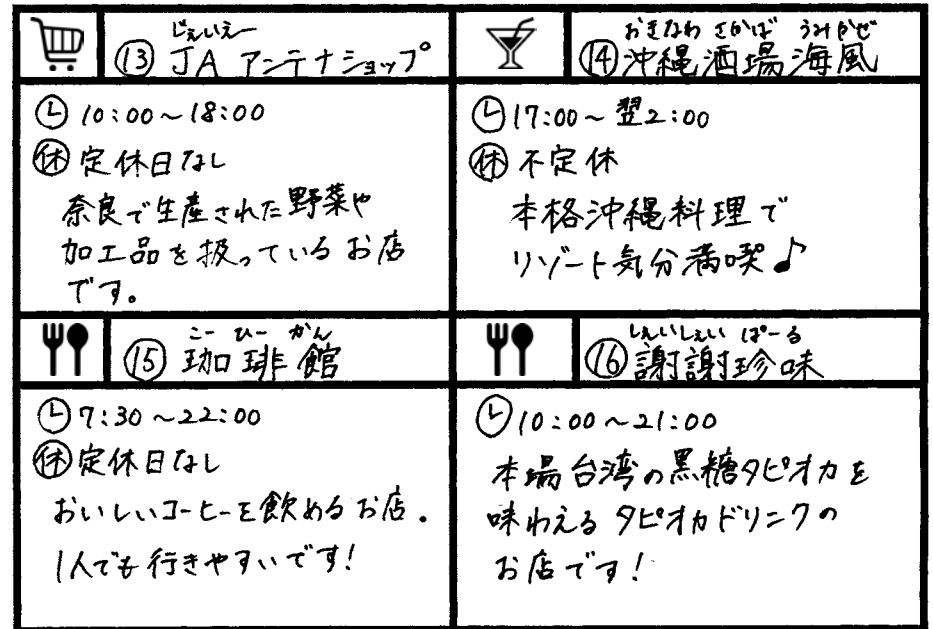 じぇいえー
⑬ JA アンテナショップ
🕒 10:00～18:00
㊡ 定休日なし
奈良で生産された野菜や
加工品を扱っているお店
です。
おきなわ さかば うみかぜ
⑭ 沖縄酒場海風
🕒 17:00～翌2:00
㊡ 不定休
本格沖縄料理で
リゾート気分満喫♪
こーひーかん
⑮ 珈琲館
🕒 7:30～22:00
㊡ 定休日なし
おいしいコーヒーを飲めるお店.
1人でも行きやすいです!
しぇいしぇい ぱーる
⑯ 謝謝珍味
🕒 10:00～21:00
本場台湾の黒糖タピオカを
味わえるタピオカドリンクの
お店です!